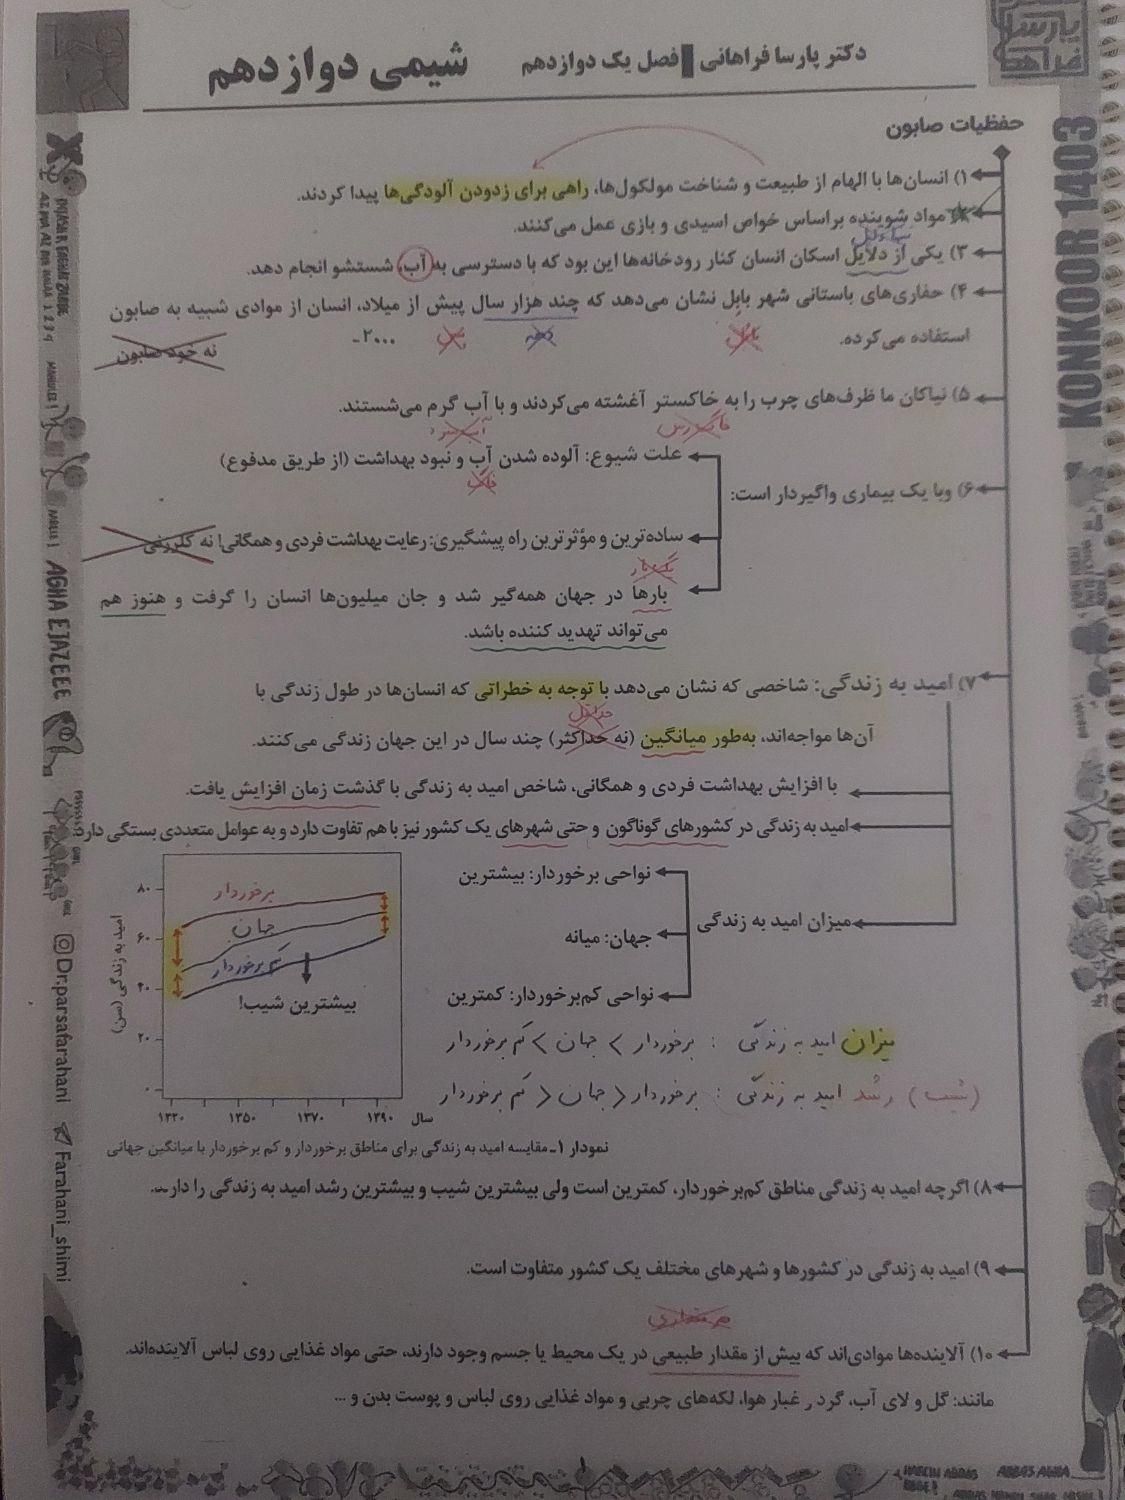 دکتر پارسا فراهانی | فصل یک دوازدهم
شیمی دوازدهم
KONKOOR 1403
حفظیات صابون
۱) انسان‌ها با الهام از طبیعت و شناخت مولکول‌ها، راهی برای زدودن آلودگی‌ها پیدا کردند.
مواد شوینده براساس خواص اسیدی و بازی عمل می‌کنند.
۳) یکی از دلایل اسکان انسان کنار رودخانه‌ها این بود که با دسترسی به آب، شستشو انجام دهد.
۴) حفاری‌های باستانی شهر بابِل نشان می‌دهد که چند هزار سال پیش از میلاد، انسان از موادی شبیه به صابون
استفاده می‌کرده.
دهه
-۲۰۰۰
نه خود صابون
۵) نیاکان ما ظرف‌های چرب را به خاکستر آغشته می‌کردند و با آب گرم می‌شستند.
آب سرد
۶) وبا یک بیماری واگیردار است:
علت شیوع: آلوده شدن آب و نبود بهداشت (از طریق مدفوع)
خاک
ساده‌ترین و مؤثرترین راه پیشگیری: رعایت بهداشت فردی و همگانی! نه کلرزنی
یک بار
بارها در جهان همه‌گیر شد و جان میلیون‌ها انسان را گرفت و هنوز هم
می‌تواند تهدید کننده باشد.
۷) امید به زندگی: شاخصی که نشان می‌دهد با توجه به خطراتی که انسان‌ها در طول زندگی با
حداقل
آن‌ها مواجه‌اند، به‌طور میانگین (نه حداکثر) چند سال در این جهان زندگی می‌کنند.
با افزایش بهداشت فردی و همگانی، شاخص امید به زندگی با گذشت زمان افزایش یافت.
امید به زندگی در کشورهای گوناگون و حتی شهرهای یک کشور نیز با هم تفاوت دارد و به عوامل متعددی بستگی دارد
میزان امید به زندگی
نواحی برخوردار: بیشترین
جهان: میانه
نواحی کم‌برخوردار: کمترین
امید به زندگی (سن)
۸۰
۶۰
۴۰
۲۰
۰
برخوردار
جهان
کم برخوردار
بیشترین شیب!
۱۳۳۰ ۱۳۵۰ ۱۳۷۰ ۱۳۹۰ سال
میزان امید به زندگی : برخوردار > جهان > کم برخوردار
(شیب) رشد امید به زندگی : برخوردار < جهان < کم برخوردار
نمودار ۱- مقایسه امید به زندگی برای مناطق برخوردار و کم برخوردار با میانگین جهانی
۸) اگرچه امید به زندگی مناطق کم‌برخوردار، کمترین است ولی بیشترین شیب و بیشترین رشد امید به زندگی را دار...
۹) امید به زندگی در کشورها و شهرهای مختلف یک کشور متفاوت است.
هر مقداری
۱۰) آلاینده‌ها موادی‌اند که بیش از مقدار طبیعی در یک محیط یا جسم وجود دارند، حتی مواد غذایی روی لباس آلاینده‌اند.
مانند: گل و لای آب، گرد و غبار هوا، لکه‌های چربی و مواد غذایی روی لباس و پوست بدن و ...
AGHA EJAZEEE
Dr.parsafarahani
Farahani_shimi